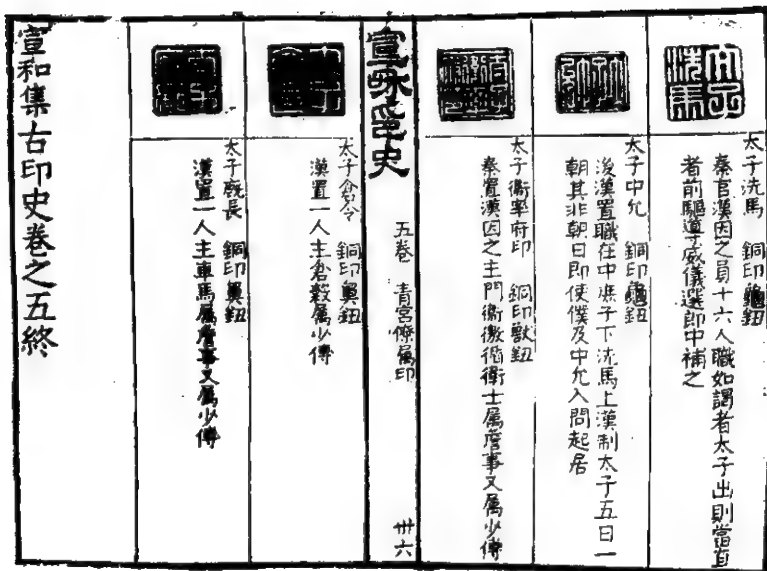 太子洗馬　銅印龜鈕
秦官漢因之員十六人職如謁者太子出則當直
者前驅導威儀選郎中補之
太子中允　銅印龜鈕
後漢置職在中庶子下洗馬上漢制太子五日一
朝其非朝日即使僕及中允入問起居
太子衞率府印　銅印獸鈕
秦置漢因之主門衞徼循衞士屬詹事又屬少傅
宣和印史
五卷　青宮僚屬印
卅六
太子倉令　銅印鼻鈕
漢置一人主倉穀屬少傅
太子廐長　銅印鼻鈕
漢置一人主車馬屬詹事又屬少傅
宣和集古印史卷之五終